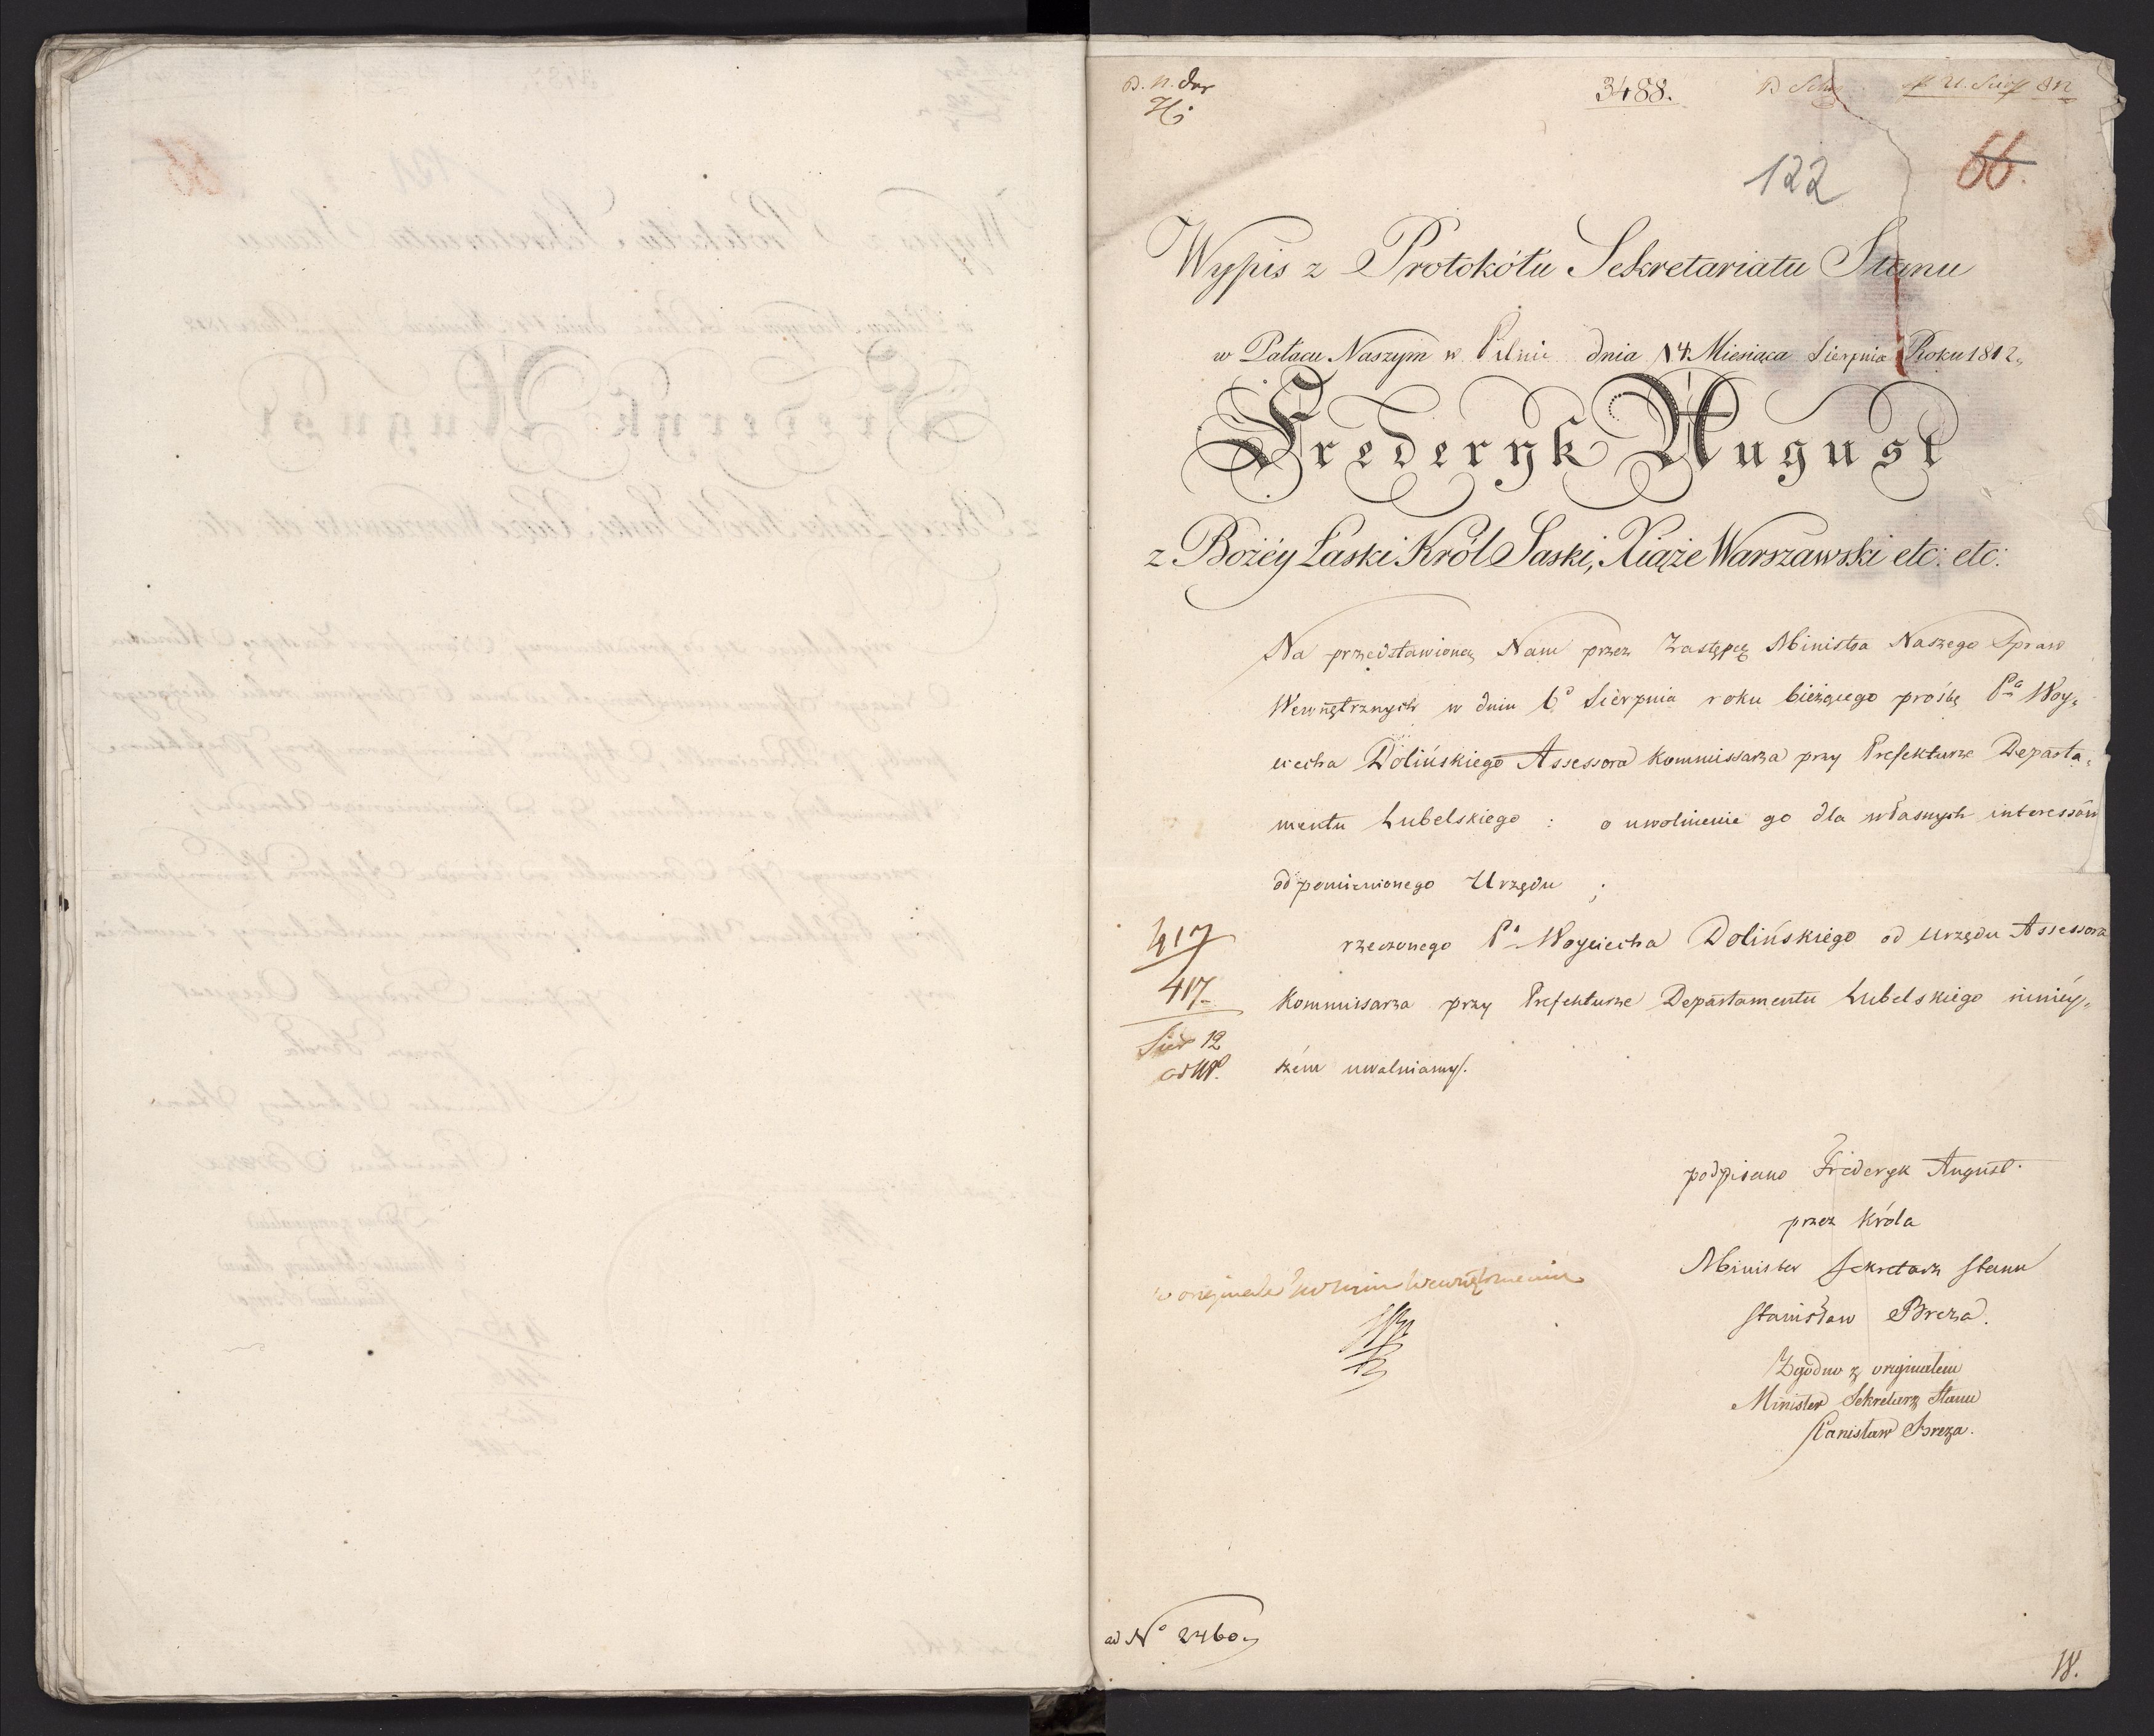 3488.
122
66.
Wypis z Protokółu Sekretariatu Stanu
w Pałacu Naszym w Pilnic dnia 14 Miesiąca Sierpnia Roku 1812.
Frederyk August
z Bożéy Łaski Król Saski, Xiąże Warszawski etc: etc:
Na przedstawioną Nam przez Zastępcę Ministra Naszego Spraw
Wewnętrznych w dniu 6º Sierpnia roku bieżącego prośbę Pª Woy„
ciecha Dolińskiego Assessora Kommissarza przy Prefekturze Departa„
mentu Lubelskiego : o uwolnienie go dla własnych interessów
od pomienionego Urzędu ;
rzeczonego Pª Woyciecha Dolińskiego od Urzędu Assessora
417
Kommissarza przy Prefekturze Departamentu Lubelskiego ninieÿ„
417
szém uwalniamy.
Sier 12
podpisano Frederyk August.
przez Króla
Minister Sekretarz Stanu
Stanisław Breza.
Zgodno z oryginałem
Minister Sekretarz Stanu
Stanisław Breza.
ad Nº 2460.